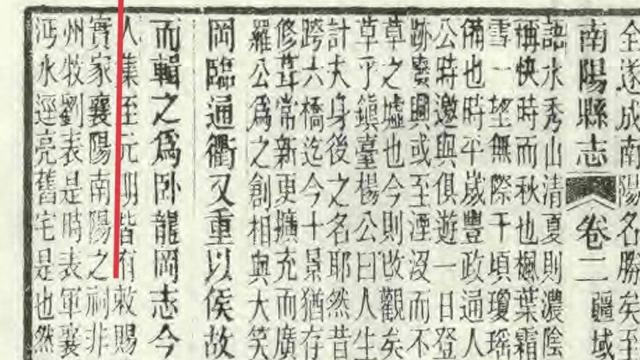 全遂成南陽名勝矣至
南陽縣志 卷二 疆域
語水秀山清夏則濃陰
稱快時而秋也楓葉霜
雪一望無際千頃瓊瑤
備也時平歲豐政通人
公時邀與俱遊一日登
跡興或至湮沒而不
草之墟也今則改觀矣
草乎鎮臺楊公曰人生
計夫身後之名耶然昔
跨六橋迄今十景猶存
修葺常新更擴充而廣
羅公爲之創相與大笑
岡臨通衢又重以侯故
而輯之爲卧龍岡志今
人至元明皆有敕賜
實家襄陽南陽之祠非
州牧劉表是時表軍襄
沔水逕亮舊宅是也然